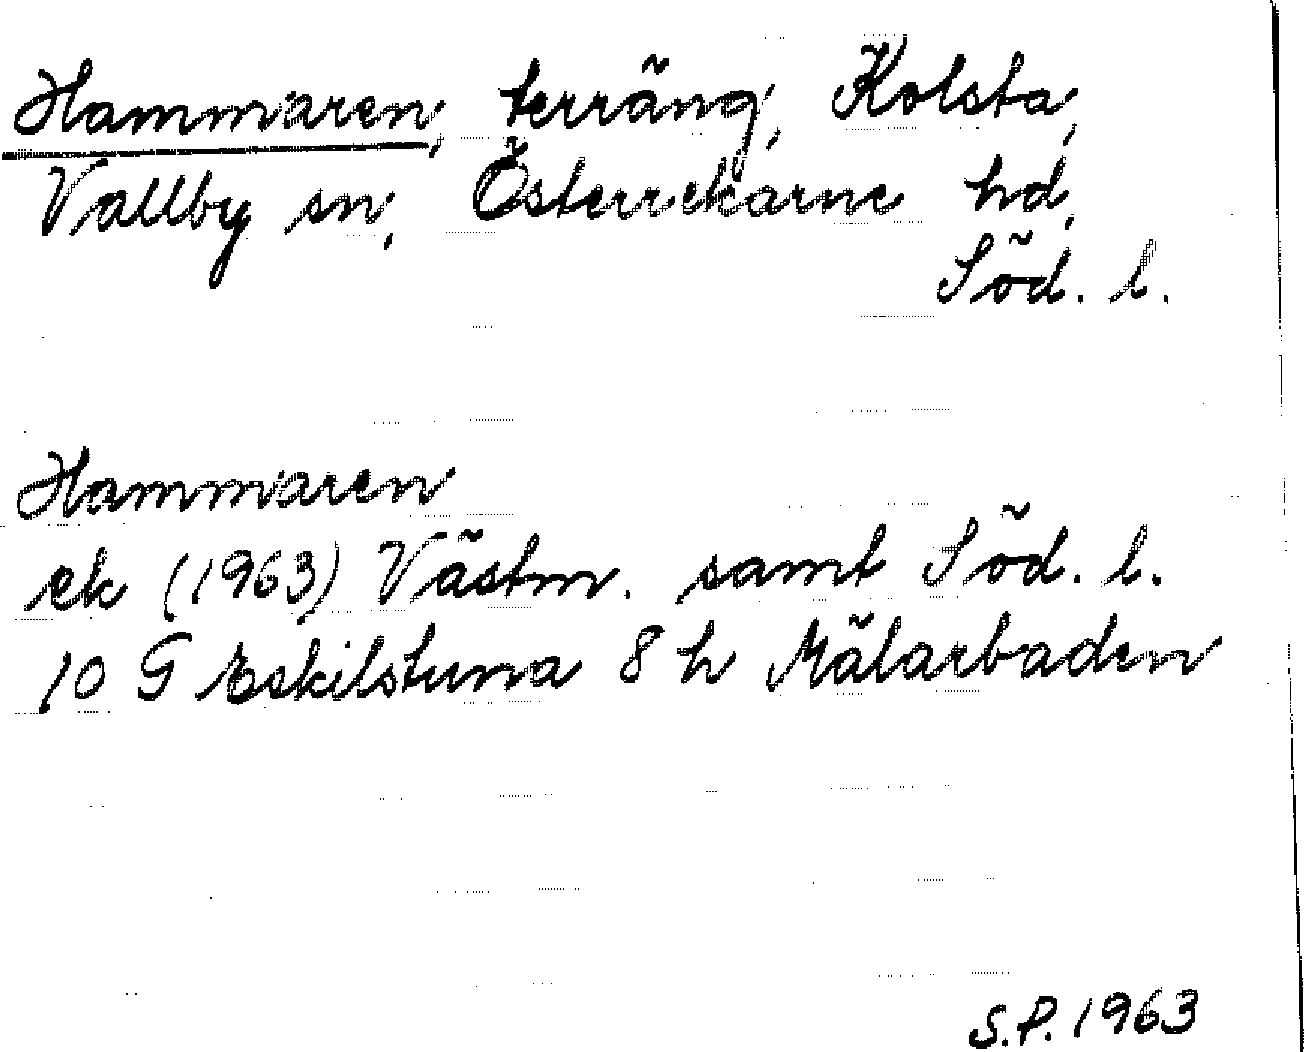 Hammaren, terräng, Kolsta,
Vallby sn, Österrekarne hd,
Söd. l.
Hammaren
ek (1963) Västm. samt Söd. l.
10 G Eskilstuna 8 h Mälarbaden
S.P. 1963